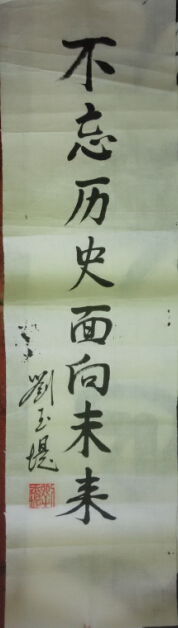 不忘历史面向未来
劉玉堤